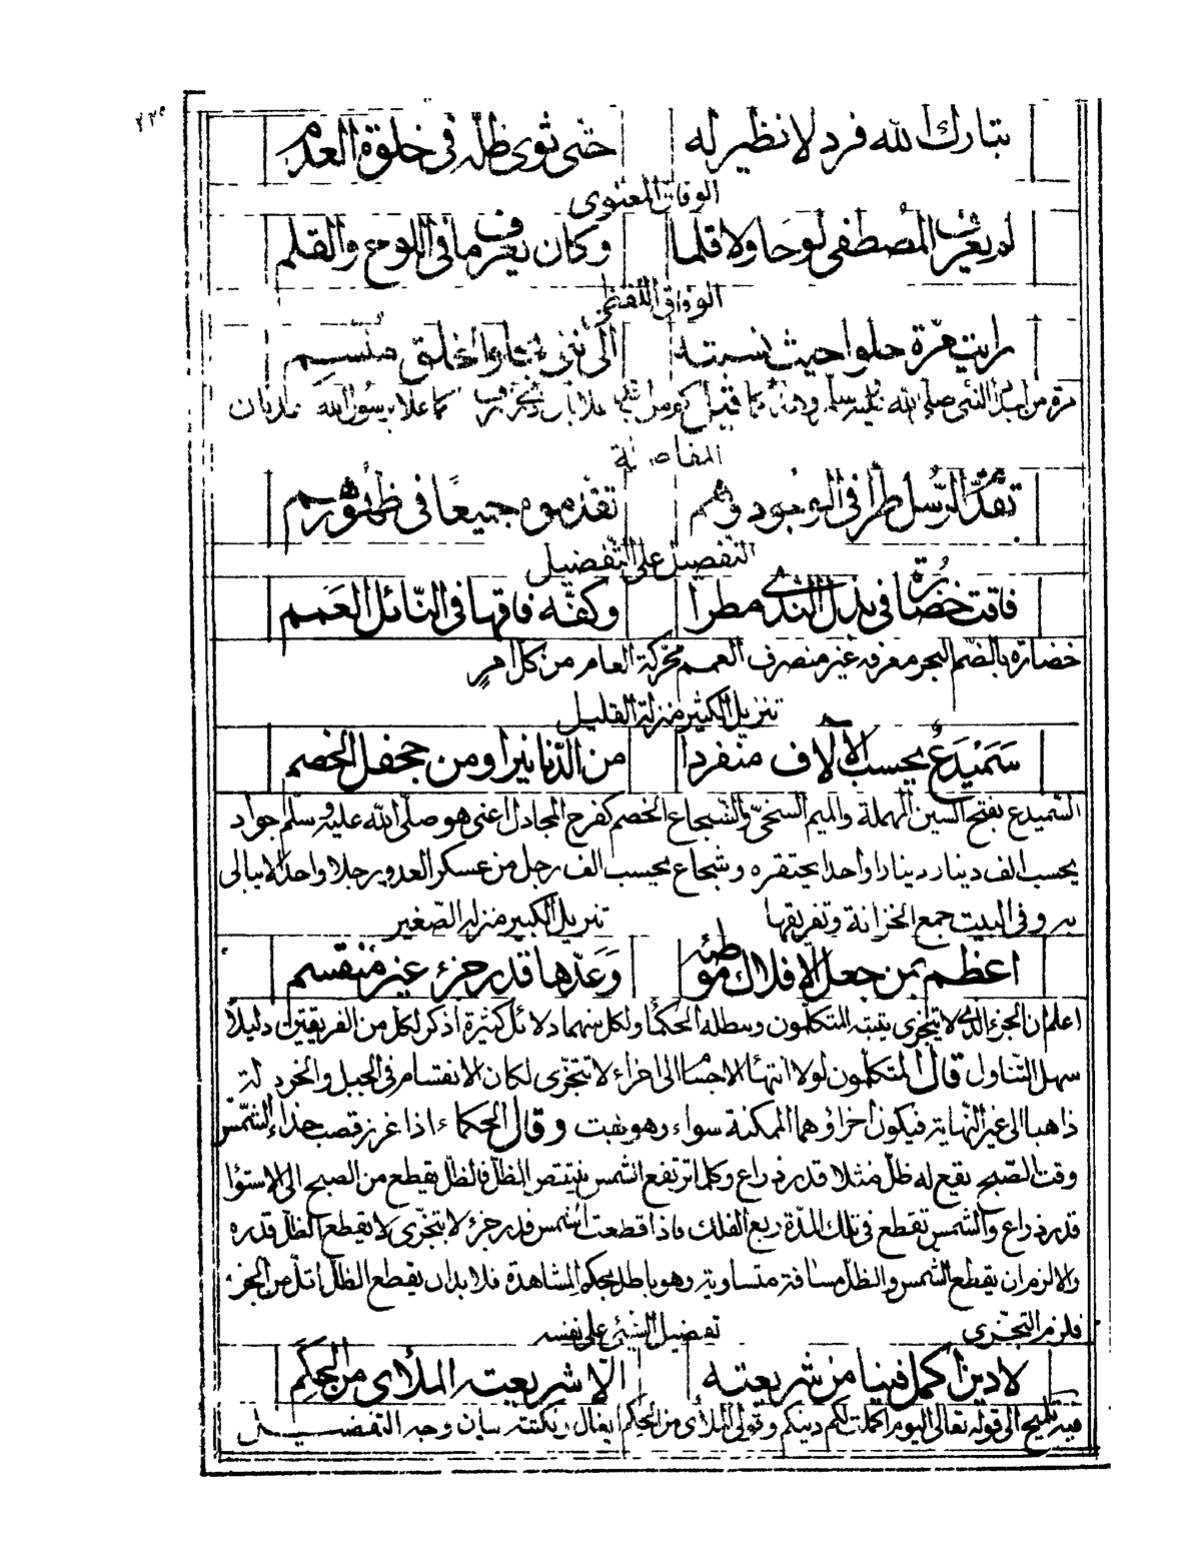 ٢٢٥
تبارك الله فرد لا نظير له حتى ثوى ظله فى خلوة العدم
الوفاق المعنوى
لم يعرف المصطفى لوحا ولا قلما وكان يعرف ما فى اللوح والقلم
الوفاق اللفظى
رايت مرة حلوا حيث نسبته الى نبى الخلق منسم
مرة من اجداد النبى صلى الله عليه وسلم كما علا برسول الله عدنان
تقدم الرسل طرا فى الوجود وهم تقدموه جميعا فى ظهورهم
التفضيل على التفضيل
فاقت خضارة فى بذل الندى مطرا وكفه فاقها فى النائل العمم
خضارة بالضم البحر معرفه غير منصرف العمم محركة العام من كل امر
تنزيل الكثير منزلة القليل
سميدع يحسب الآلاف منفردا من الدنانير او من جحفل الخصم
السميدع بفتح السين المهملة والميم السخى والشجاع الخصم كفرح المجادل اعنى هو صلى الله عليه وسلم جواد
يحسب الف دينار دينارا واحدا يحتقره وشجاع يحسب الف رجل من عسكر العدو رجلا واحدا لا يبالى
به وفى البيت جمع الخزانة وتفريقها تنزيل الكبير منزلة الصغير
اعظم بمن جعل الافلاك موطئه وعدها قدر جزء غير منقسم
اعلم ان الجزء الذى لا يتجزى يثبته المتكلمون ويبطله الحكماء ولكل منهما دلائل كثيرة اذكر لكل من الفريقين دليلا
سهل التناول قال المتكلمون لولا انتهاء الاجسام الى اجزاء لا تتجزى لكان الانقسام فى الجبل والخردلة
ذاهبا الى غير النهاية فيكون اجزاؤهما الممكنة سواء وهو بهت وقال الحكماء اذا غرز قصب حذاء الشمس
وقت الصبح يقع له ظل مثلا قدر ذراع وكلما ترتفع الشمس ينتقص الظل فالظل يقطع من الصبح الى الاستواء
قدر ذراع والشمس تقطع فى تلك المدة ربع الفلك فاذا قطعت الشمس قدر جزء لا يتجزى لا يقطع الظل قدره
والا لزم ان يقطع الشمس والظل مسافة متساوية وهو باطل بحكم المشاهدة فلا بد ان يقطع الظل اقل من الجزء
فلزم التجزى تفضيل الشىء على نفسه
لا دين اكمل فينا من شريعته الا شريعته الملأى من الحكم
فيه تلميح الى قوله تعالى اليوم اكملت لكم دينكم وقولى الملأى من الحكم ايغال ونكتته بيان وجه التفضيل